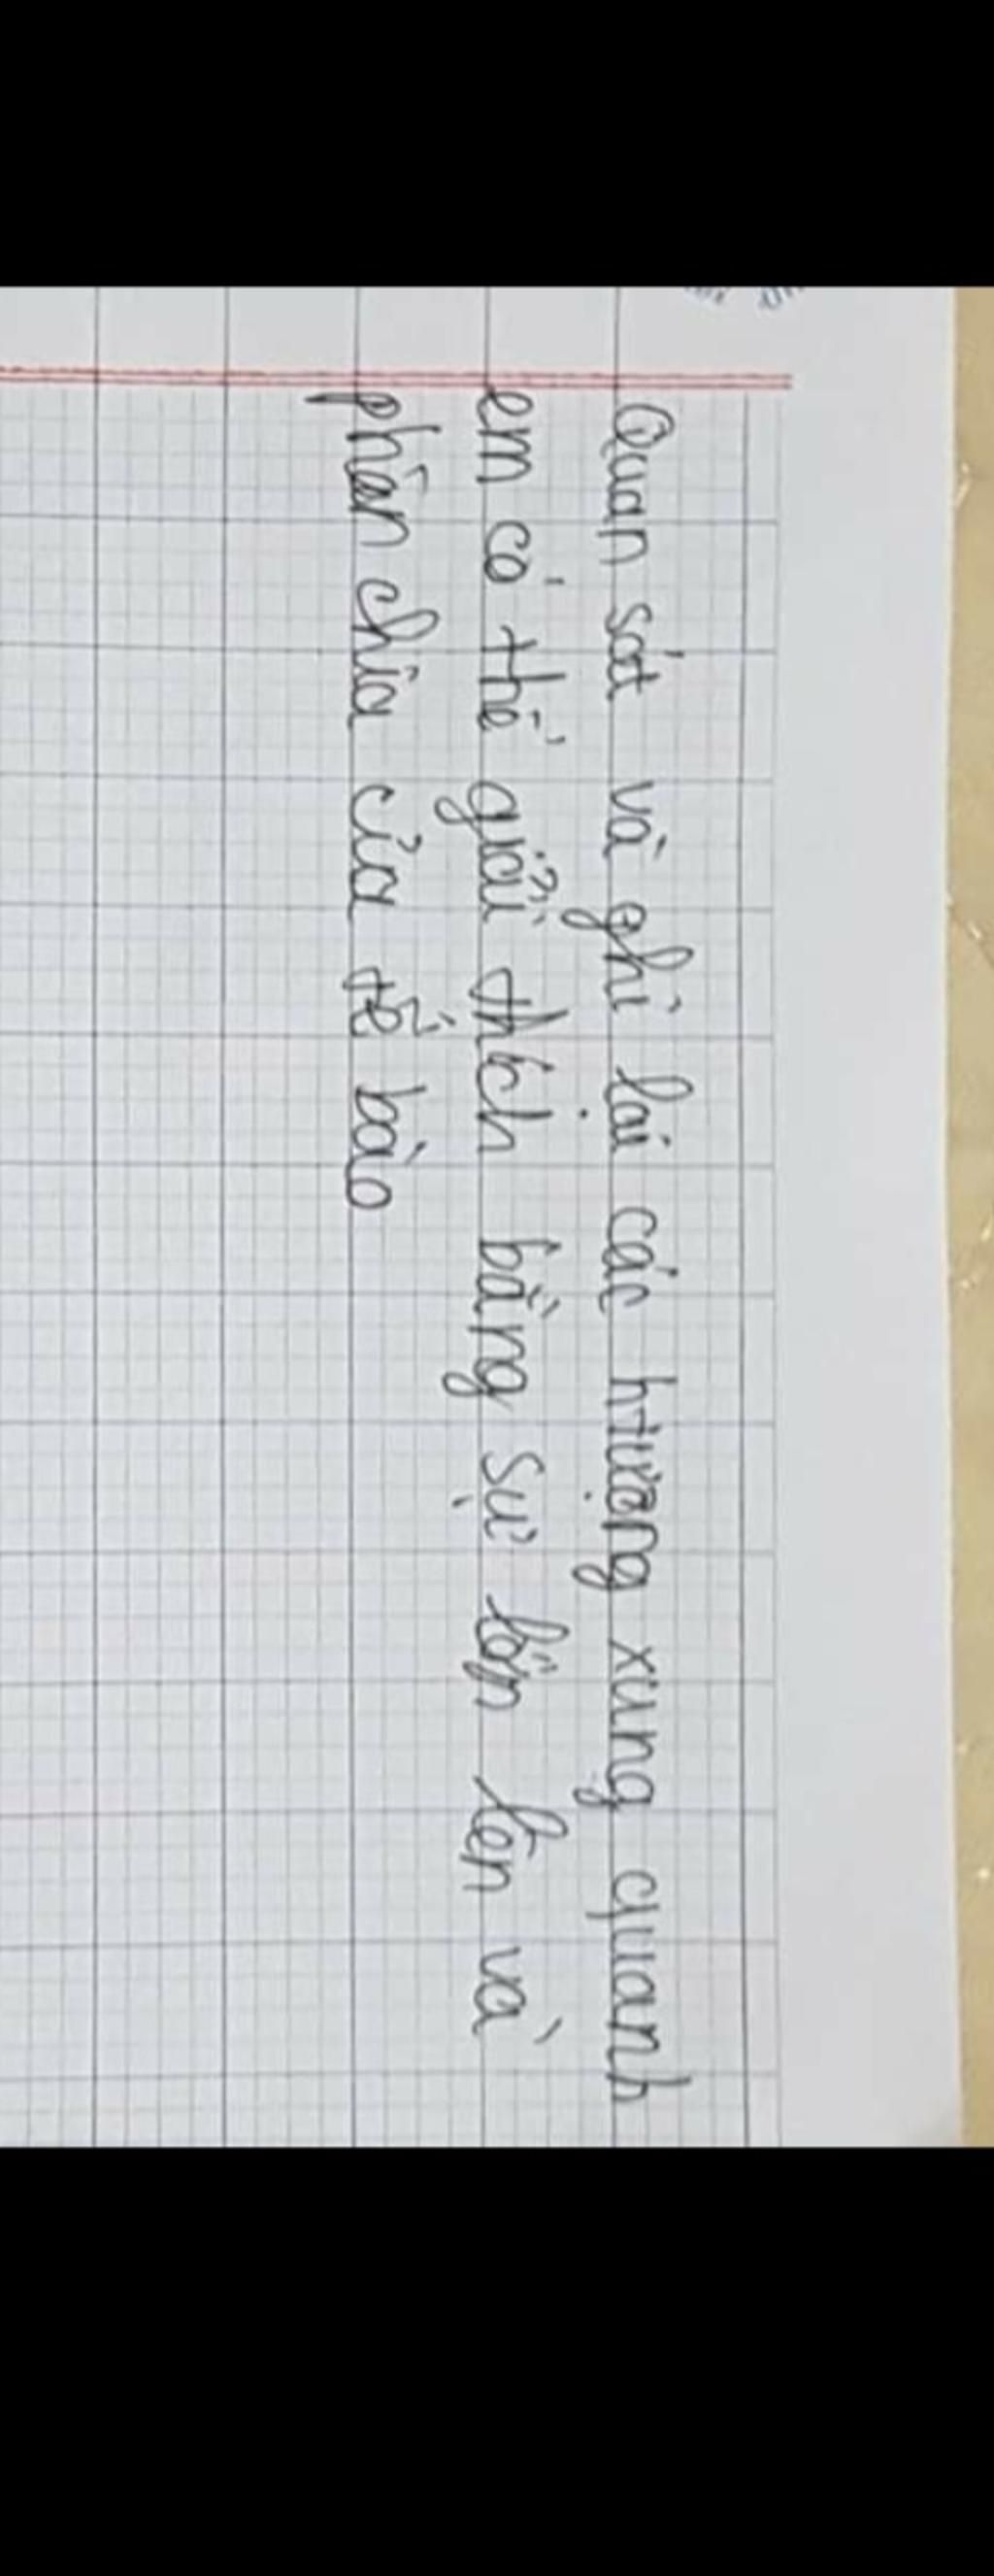 Quan sát và ghi lại các htượng xung quanh
em có thể giải thích bằng sự lớn lên và
phân chia của tế bào